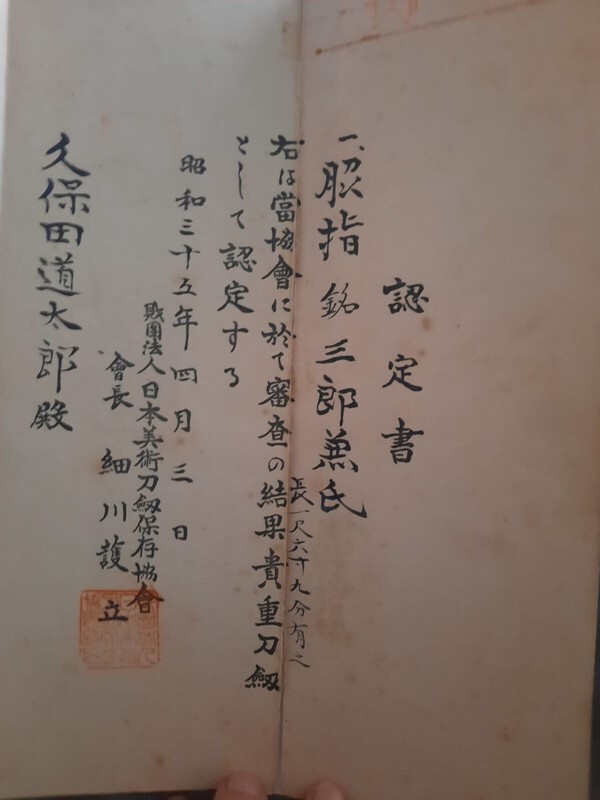 認定書
一、脇指 銘 三郎兼氏
長一尺六寸九分有之
右は當協會に於て審査の結果貴重刀劔
として認定する
昭和三十五年四月三日
財團法人日本美術刀劔保存協會
會長 細川護立
久保田道太郎殿